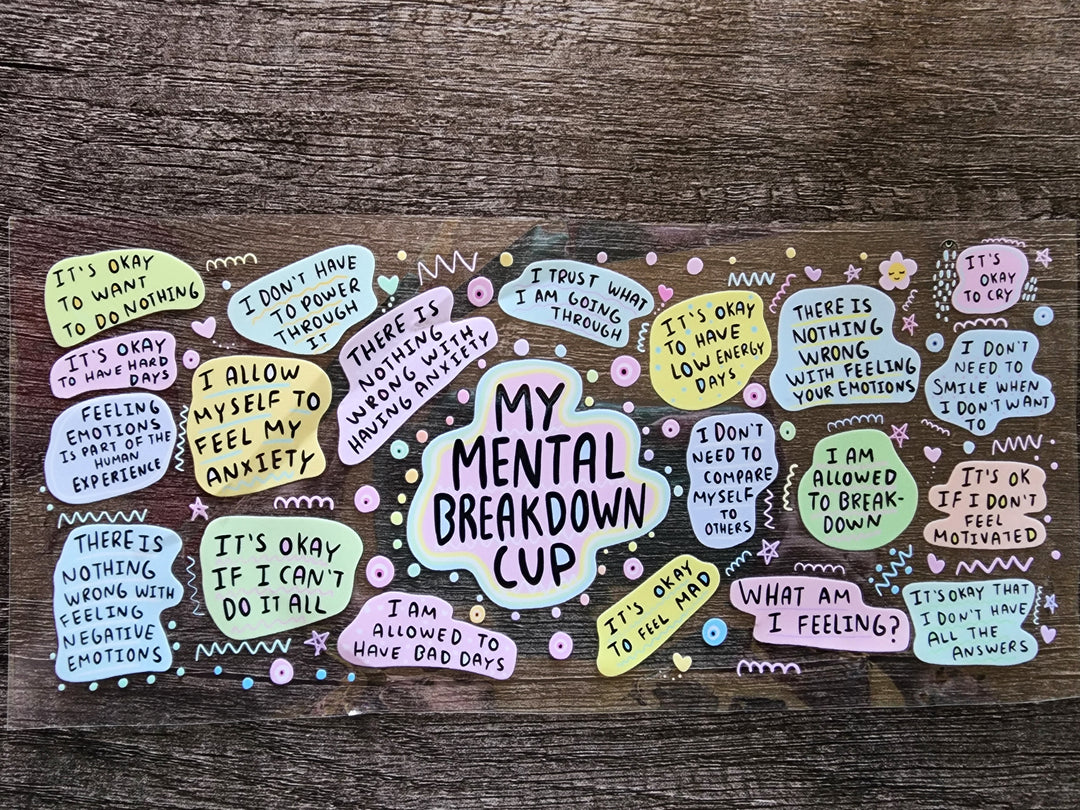 IT'S OKAY
TO WANT
TO DO NOTHING
I DON'T HAVE
TO POWER
THROUGH
IT
THERE IS
NOTHING
WRONG WITH
HAVING ANXIETY
I TRUST WHAT
I AM GOING
THROUGH
IT'S OKAY
TO HAVE
LOW ENERGY
DAYS
THERE IS
NOTHING
WRONG
WITH FEELING
YOUR EMOTIONS
IT'S
OKAY
TO CRY
IT'S OKAY
TO HAVE HARD
DAYS
I ALLOW
MYSELF TO
FEEL MY
ANXIETY
FEELING
EMOTIONS
IS PART OF THE
HUMAN
EXPERIENCE
MY
MENTAL
BREAKDOWN
CUP
I DON'T
NEED TO
COMPARE
MYSELF
TO
OTHERS
I AM
ALLOWED
TO BREAK-
DOWN
I DON'T
NEED TO
SMILE WHEN
I DON'T WANT
TO
IT'S OK
IF I DON'T
FEEL
MOTIVATED
THERE IS
NOTHING
WRONG WITH
FEELING
NEGATIVE
EMOTIONS
IT'S OKAY
IF I CAN'T
DO IT ALL
I AM
ALLOWED TO
HAVE BAD DAYS
IT'S OKAY
TO FEEL MAD
WHAT AM
I FEELING?
IT'S OKAY THAT
I DON'T HAVE
ALL THE
ANSWERS